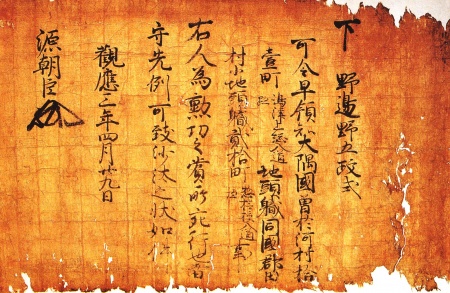 下 野邊野五政式
可令早領知大隅國曽於河村拾
壹町 嶋津上総入道 地頭職同國郡田
村小地頭職貳拾町
右人為勲功之賞所宛行也者
守先例可致沙汰之状如件
觀應三年四月廿九日
源朝臣